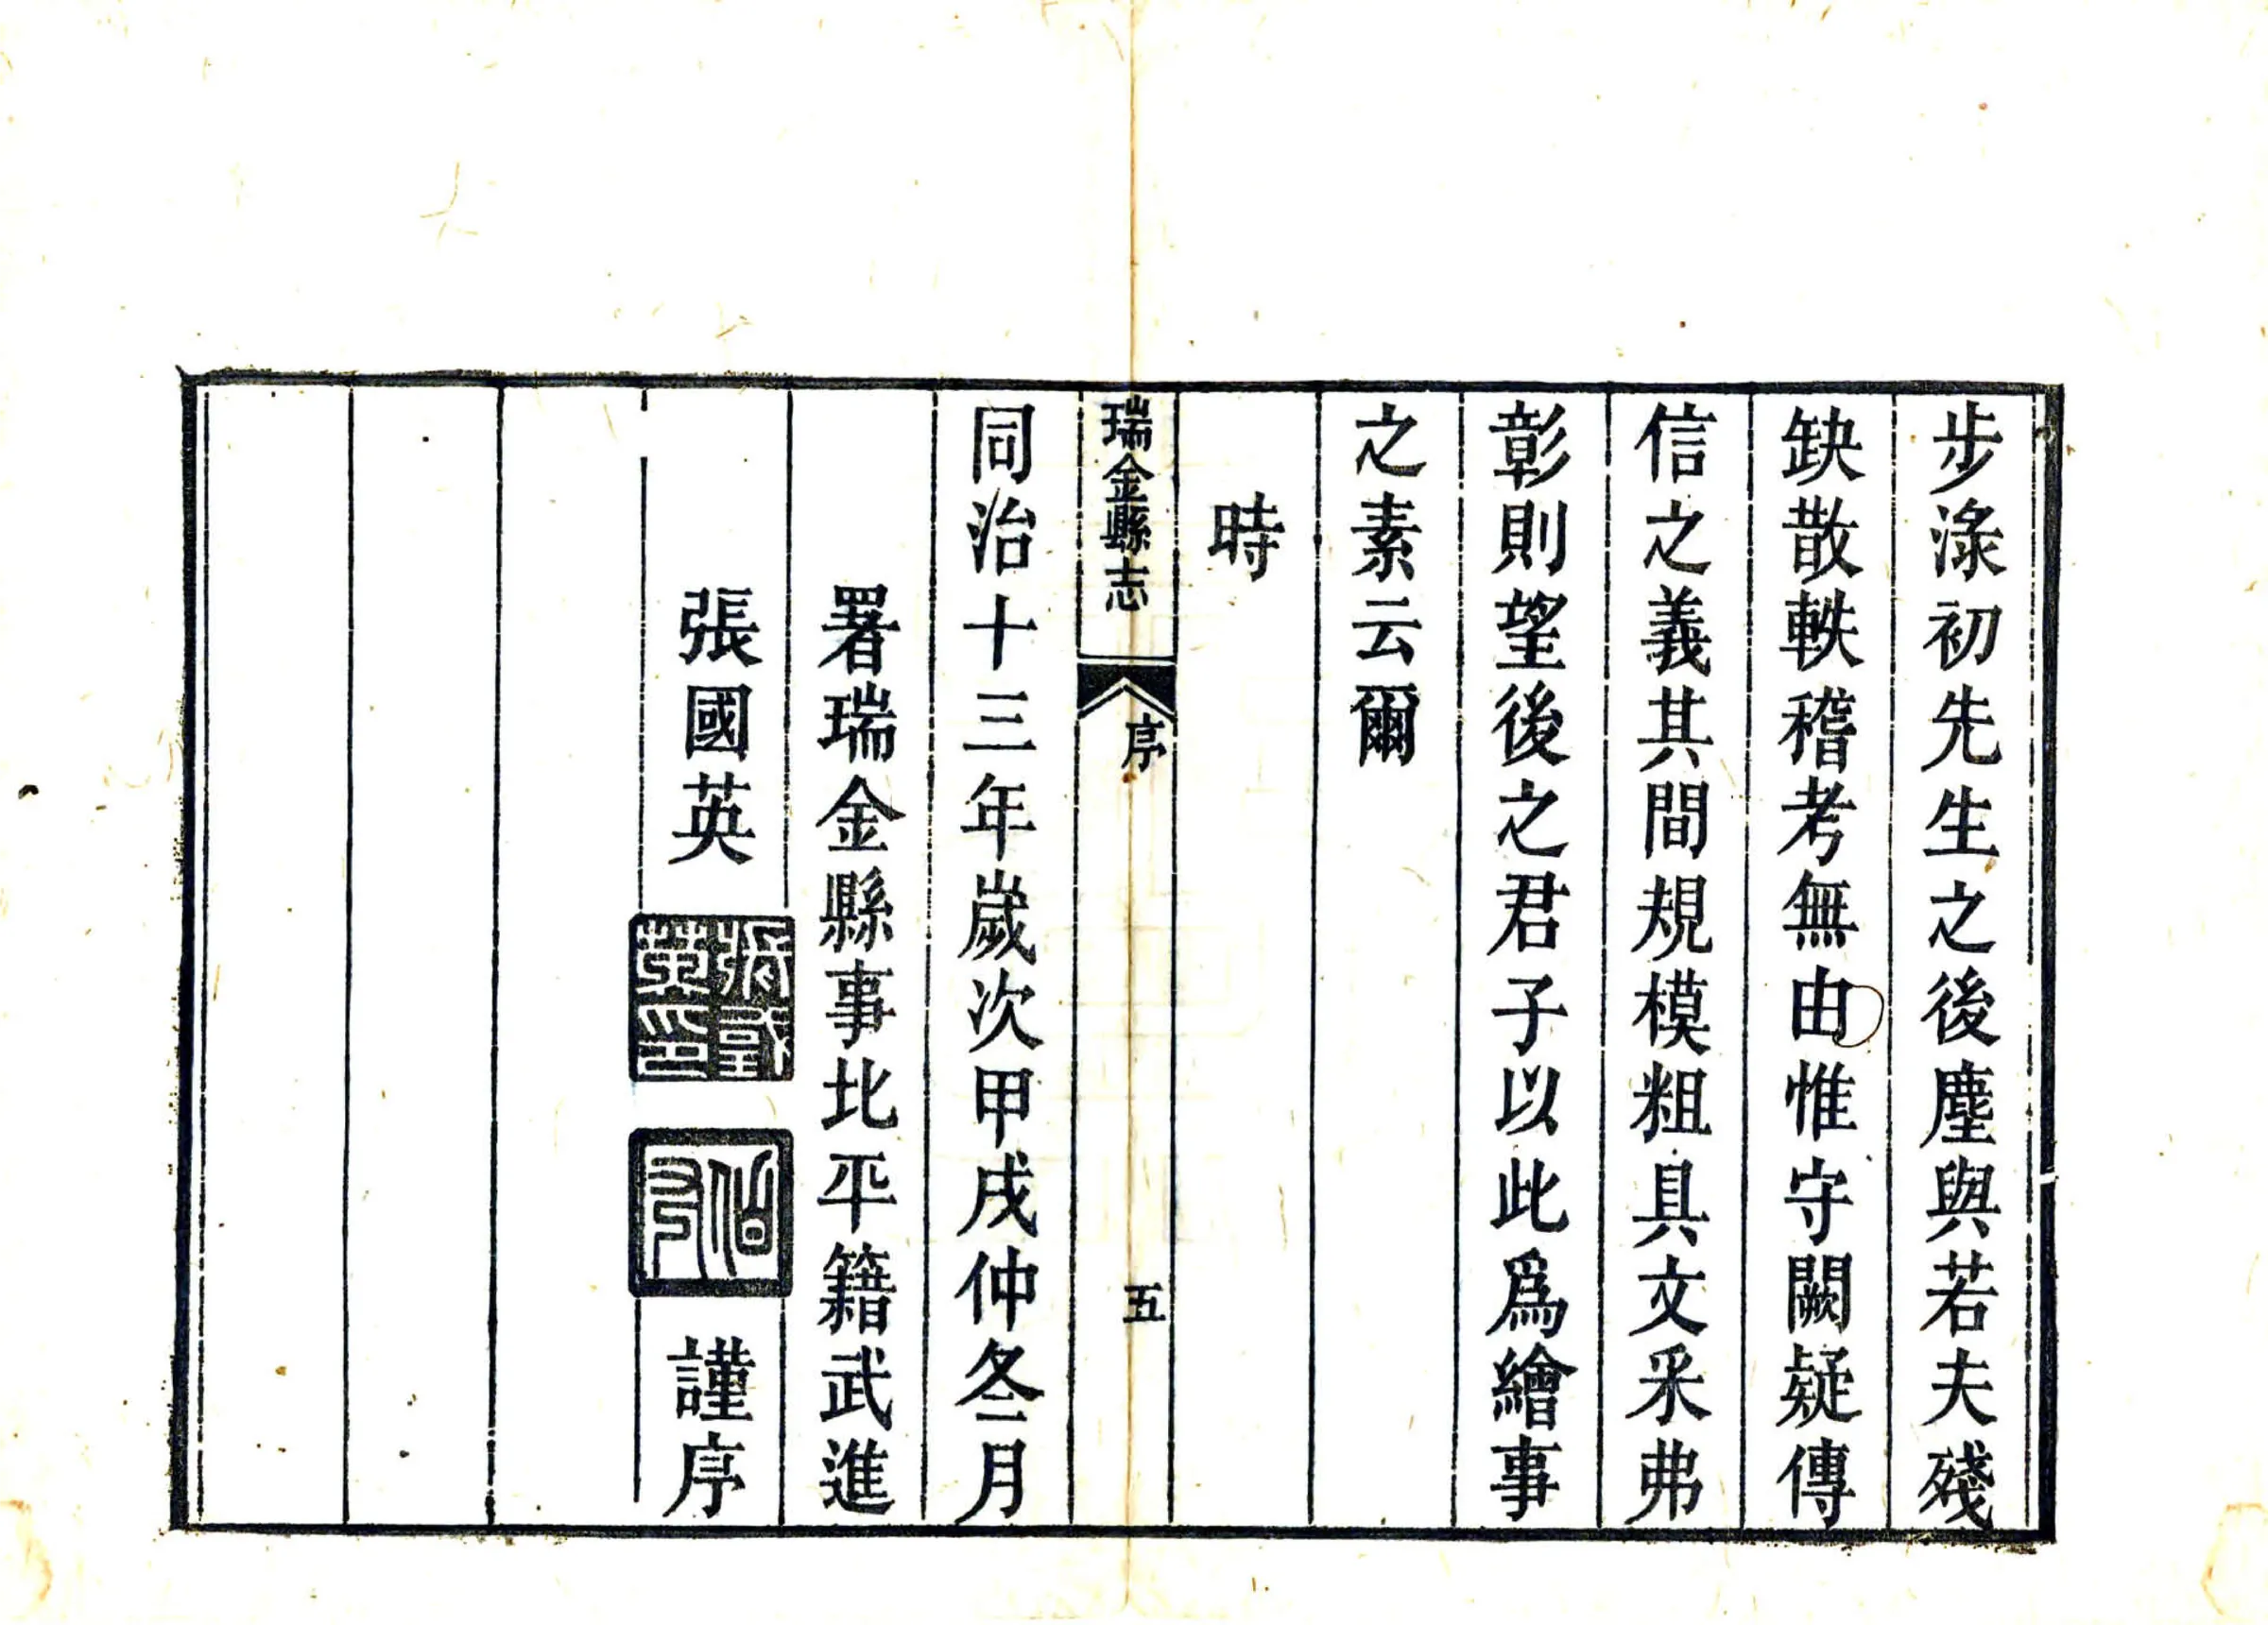 步淥初先生之後塵與若夫殘
缺散軼稽考無由惟守闕疑傳
信之義其間規模粗具文采弗
彰則望後之君子以此爲繪事
之素云爾
時
瑞金縣志
序
五
同治十三年歲次甲戌仲冬月
署瑞金縣事北平籍武進
張國英
張國英印
謹序